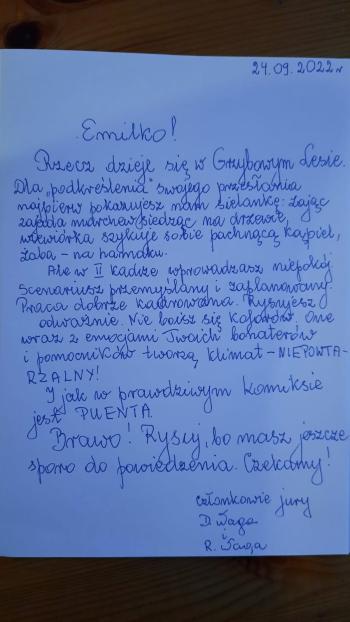 24.09.2022r
Emilko!
Rzecz dzieje się w Grzybowym Lesie.
Dla „podkreślenia swojego przesłania
najpierw pokazujesz nam sielankę: zając
zajada marchew siedząc na drzewie,
wiewiórka szykuje sobie pachnącą kąpiel,
żaba - na hamaku.
Ale w II kadrze wprowadzasz niepokój
Scenariusz przemyślany i zaplanowany.
Praca dobrze kadrowana. Rysujesz
odważnie. Nie boisz się kolorów. One
wraz z emocjami Twoich bohaterów
i pomocników tworzą klimat - NIEPOWTA-
RZALNY!
I jak w prawdziwym komiksie
jest PUENTA
Brawo! Rysuj, bo masz jeszcze
sporo do powiedzenia. Czekamy!
członkowie jury
D.
i
R.